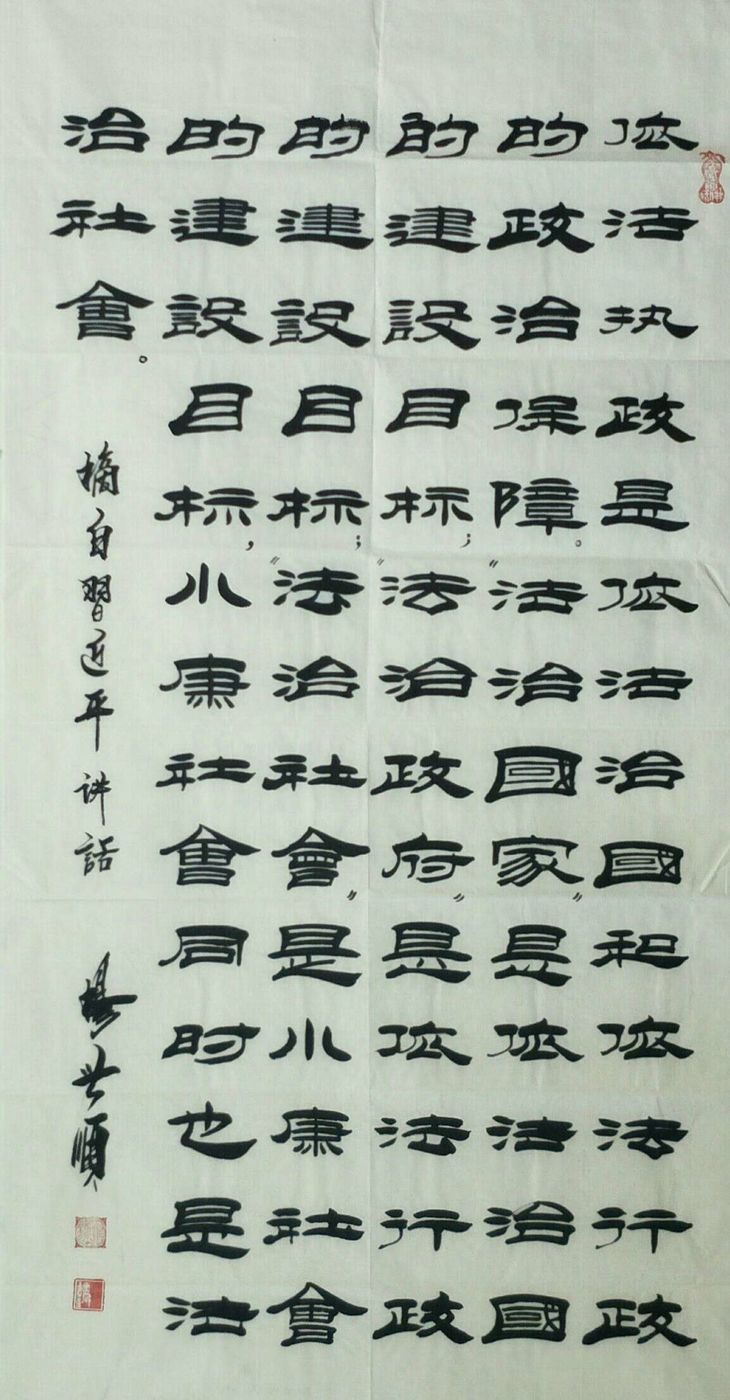 依法执政是依法治國和依法行政
的政治保障。“法治國家”是依法治國
的建設目标;“法治政府”是依法行政
的建設目标;“法治社會”是小康社會
的建設目标,小康社會同时也是法
治社會。
摘自習近平讲話
楊世順